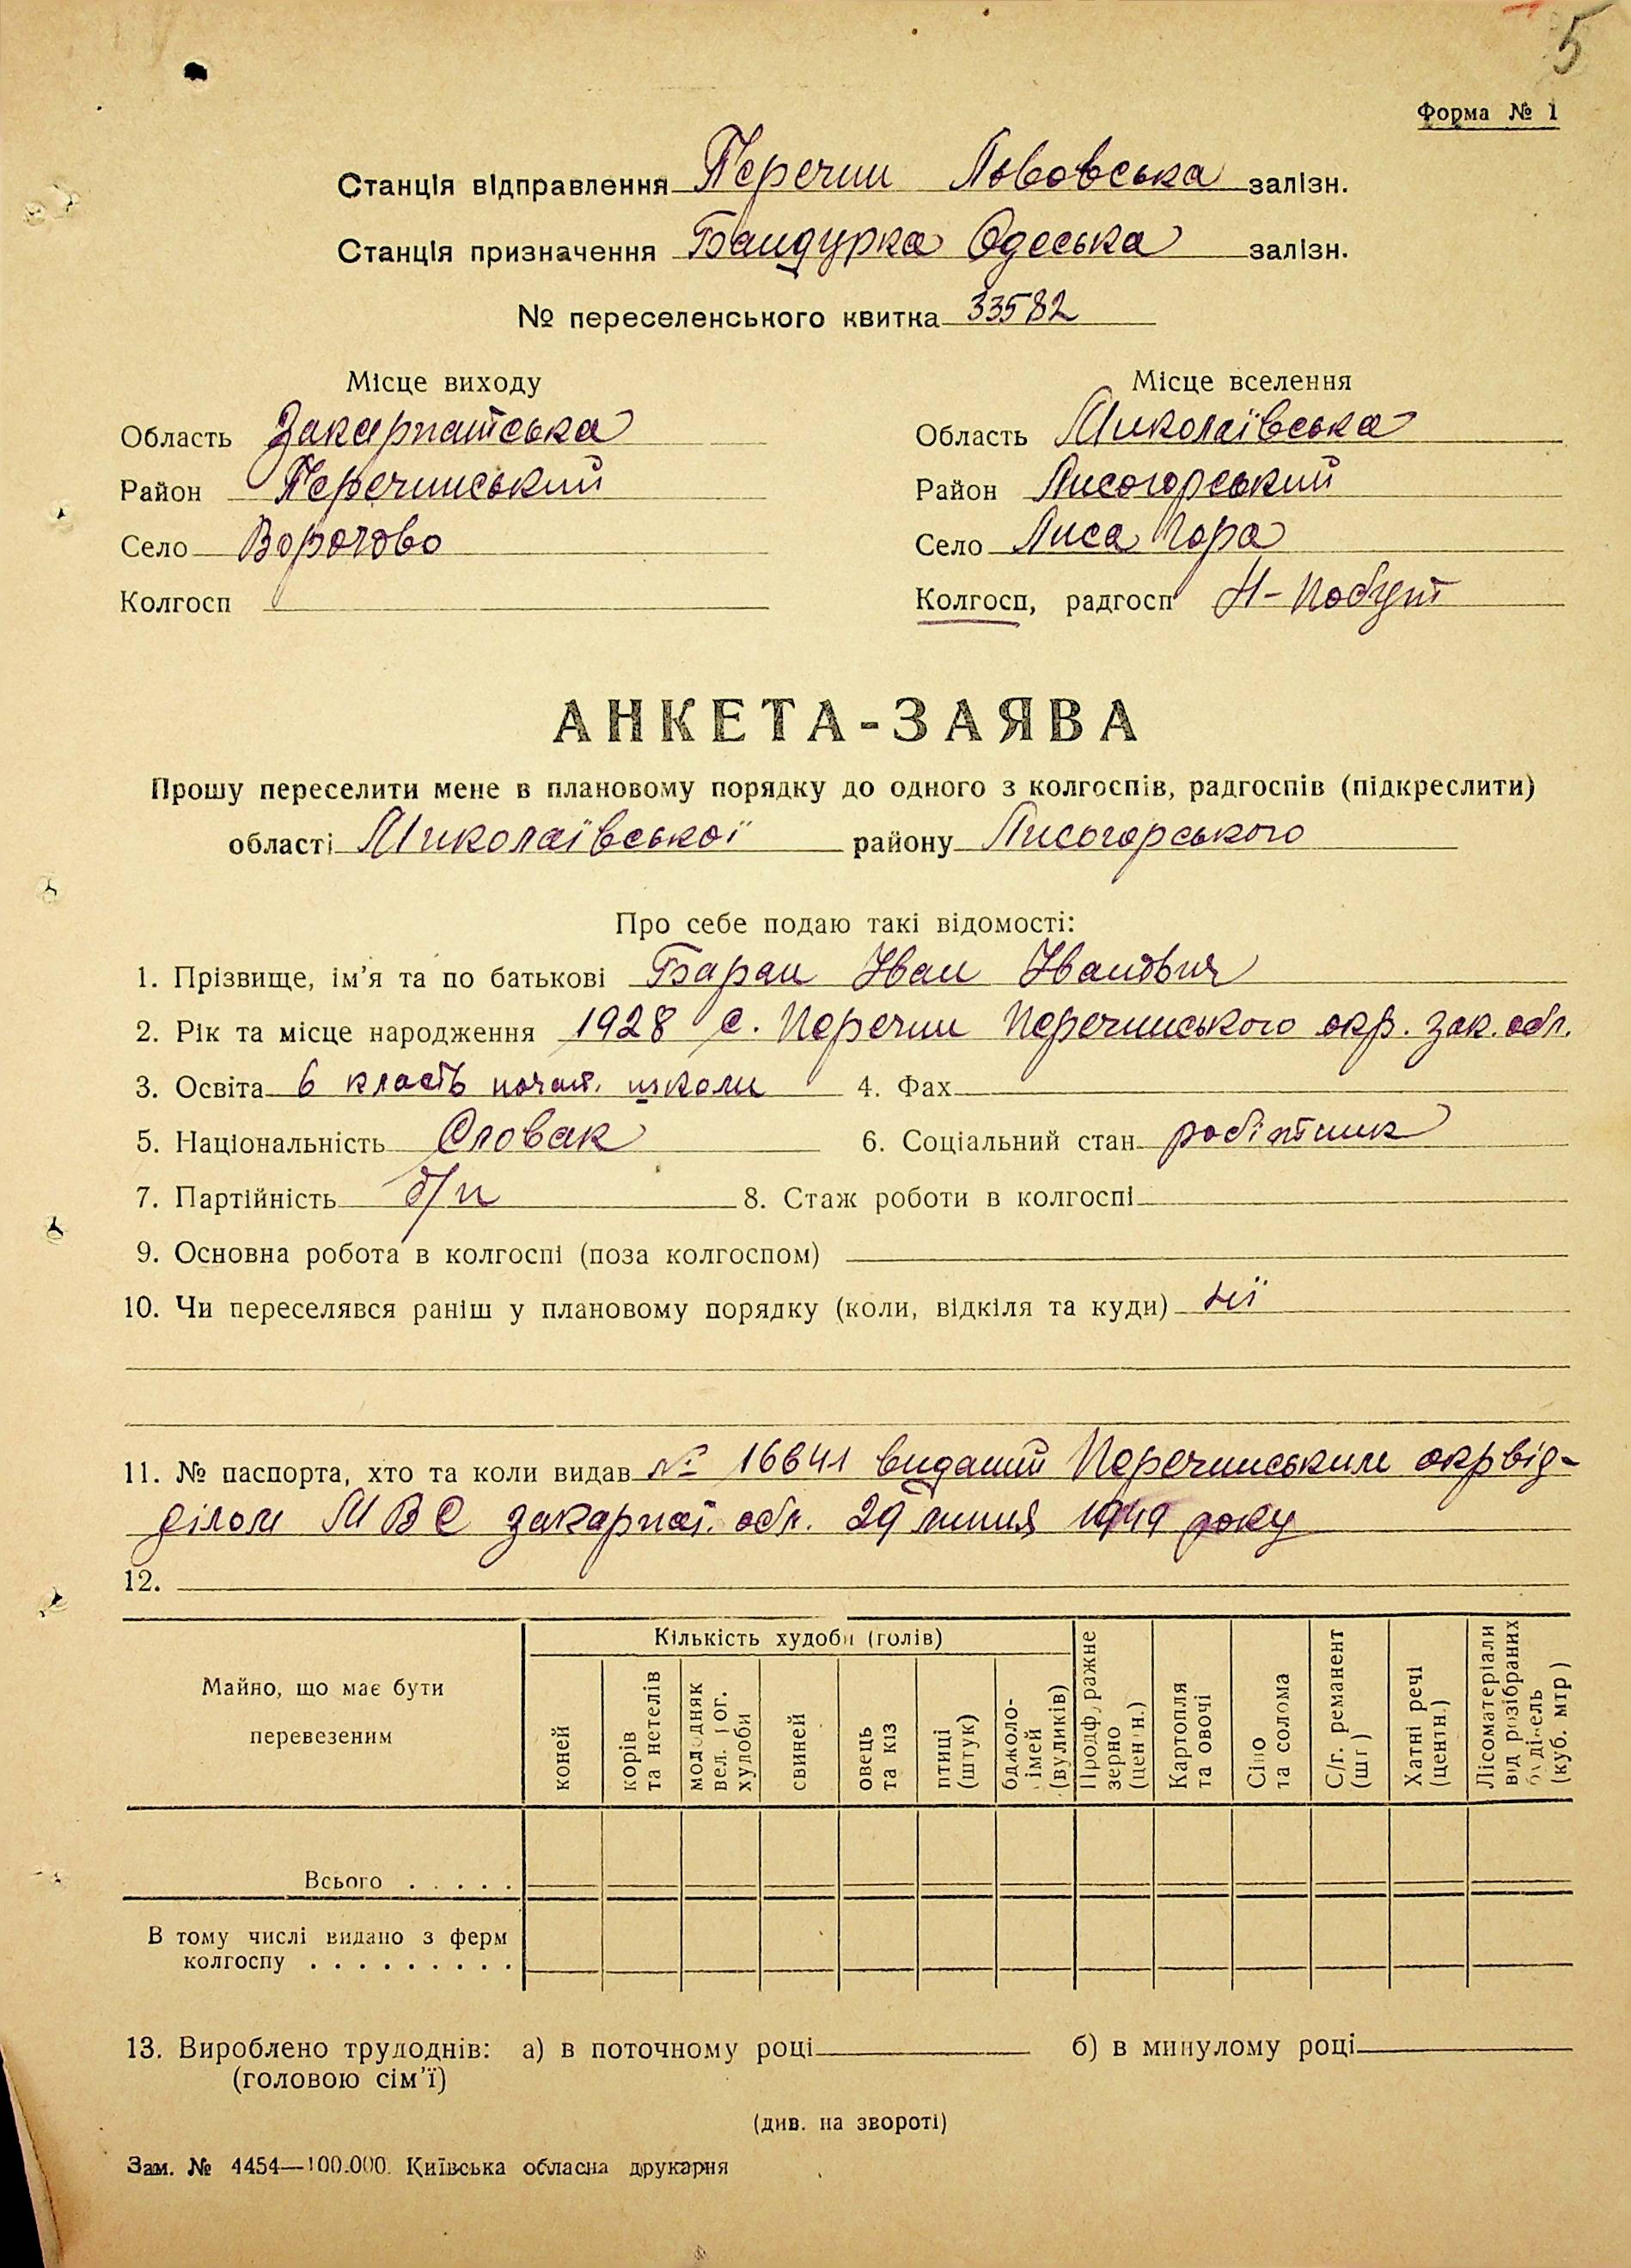 5
Форма № 1
Станція відправлення Перечин Львовська залізн.
Станція призначення Бандурка Одеська залізн.
№ переселенського квитка 33582
Місце виходу Місце вселення
Область Закарпатська Область Миколаївська
Район Перечинський Район Лисогорський
Село Ворочово Село Лиса Гора
Колгосп Колгосп, радгосп Н-Побут
АНКЕТА-ЗАЯВА
Прошу переселити мене в плановому порядку до одного з колгоспів, радгоспів (підкреслити)
області Миколаївської району Лисогорського
Про себе подаю такі відомості:
1. Прізвище, ім’я та по батькові Баран Иван Иванович
2. Рік та місце народження 1928 с. Перечин Перечинського окр. Зак. обл.
3. Освіта 6 класів почат. школи 4. Фах
5. Національність Словак 6. Соціальний стан робітник
7. Партійність б/п 8. Стаж роботи в колгоспі
9. Основна робота в колгоспі (поза колгоспом)
10. Чи переселявся раніш у плановому порядку (коли, відкіля та куди) ні
11. № паспорта, хто та коли видав № 16641 виданий Перечинським окрвід-
ділом МВС Закарпат. обл. 29 липня 1949 року
12.
Майно, що має бути перевезеним
Кількість худоби (голів)
коней
корів та нетелів
молодняк вел. рог. худоби
свиней
овець та кіз
птиці (штук)
бджоло-сімей (вуликів)
Продфуражне зерно (центн.)
Картопля та овочі
Сіно та солома
С/г. реманент (шт.)
Хатні речі (центн.)
Лісоматеріали від розібраних будівель (куб. мтр)
Всього . . . . .
В тому числі видано з ферм
колгоспу . . . . . . . . .
13. Вироблено трудоднів: а) в поточному році б) в минулому році
(головою сім’ї)
(див. на звороті)
Зам. № 4454—100.000. Київська обласна друкарня